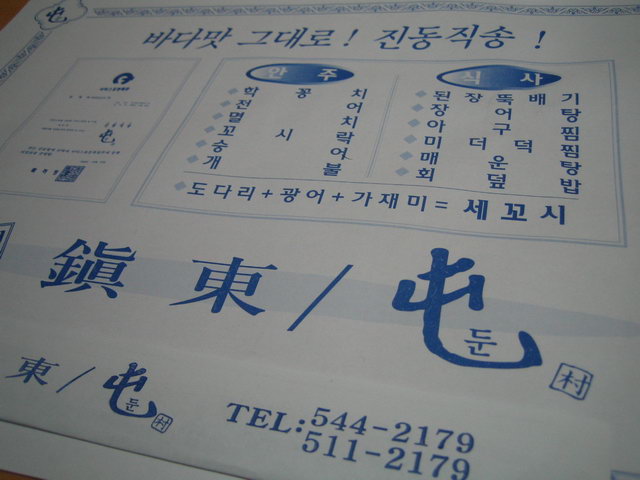 屯
바다맛 그대로! 진동직송 !
안주
학꽁치
전어
멸치
꼬시락
숭어
개불
식사
된장뚝배기
장어탕
아구찜
미더덕찜
매운탕
회덮밥
도다리+광어+가재미= 세꼬시
鎭東/屯 둔 村
東/屯 둔 村
TEL:544-2179
511-2179